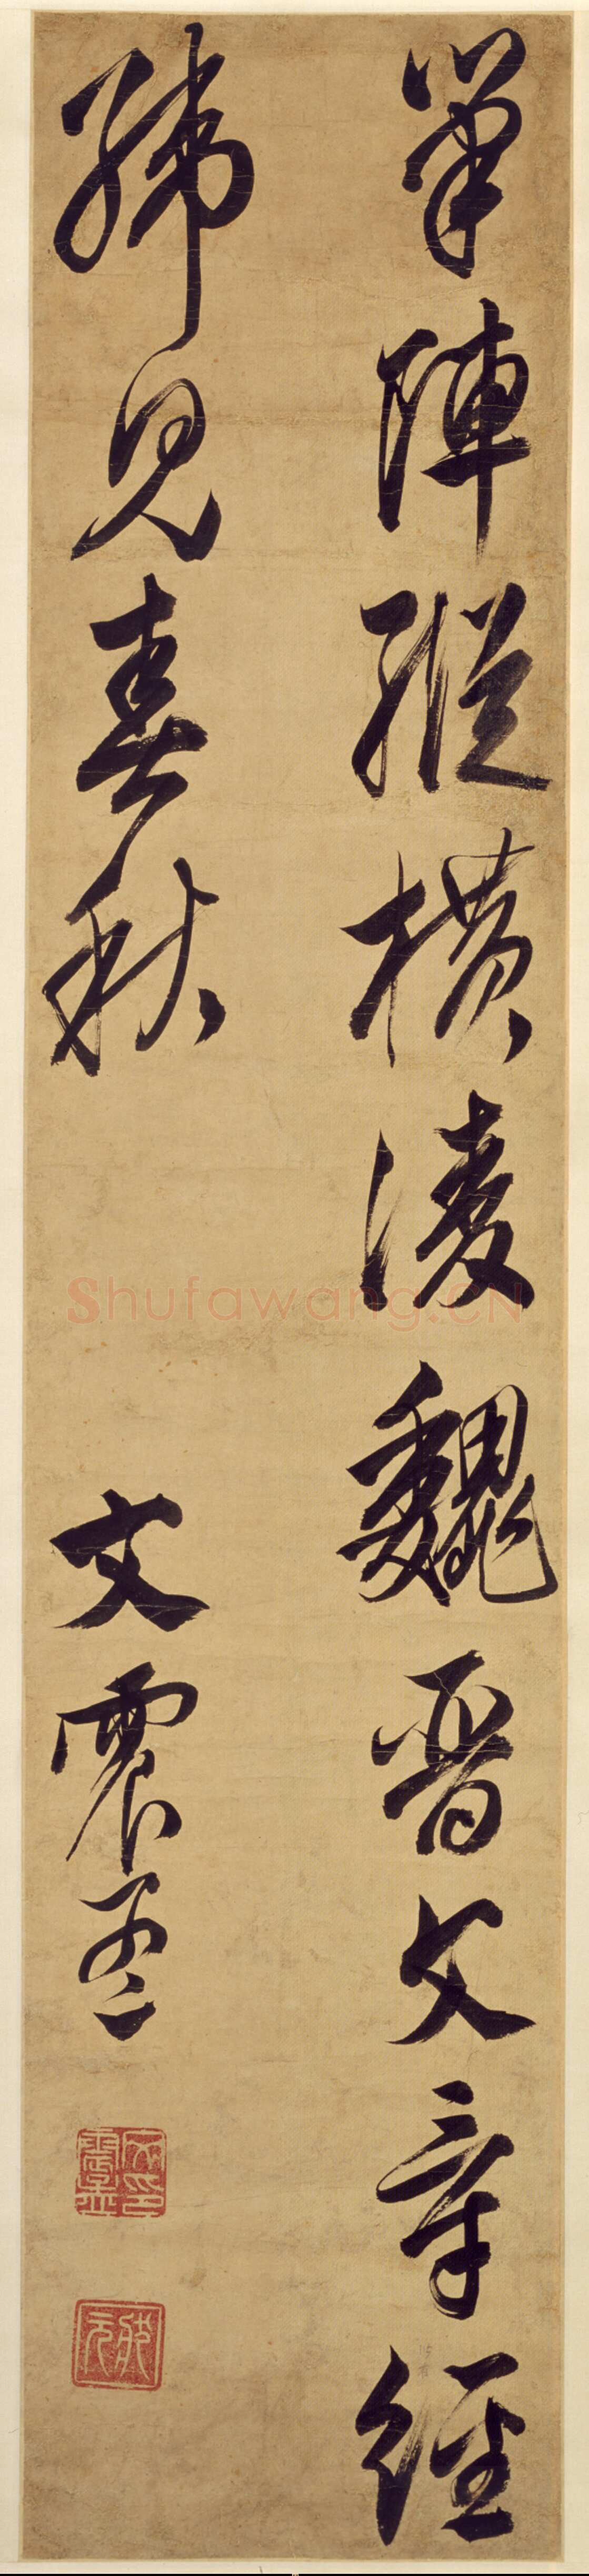 筆陣縱橫淩魏晉文章經
緯見春秋
文震孟
文震孟印
Shufawang.CN